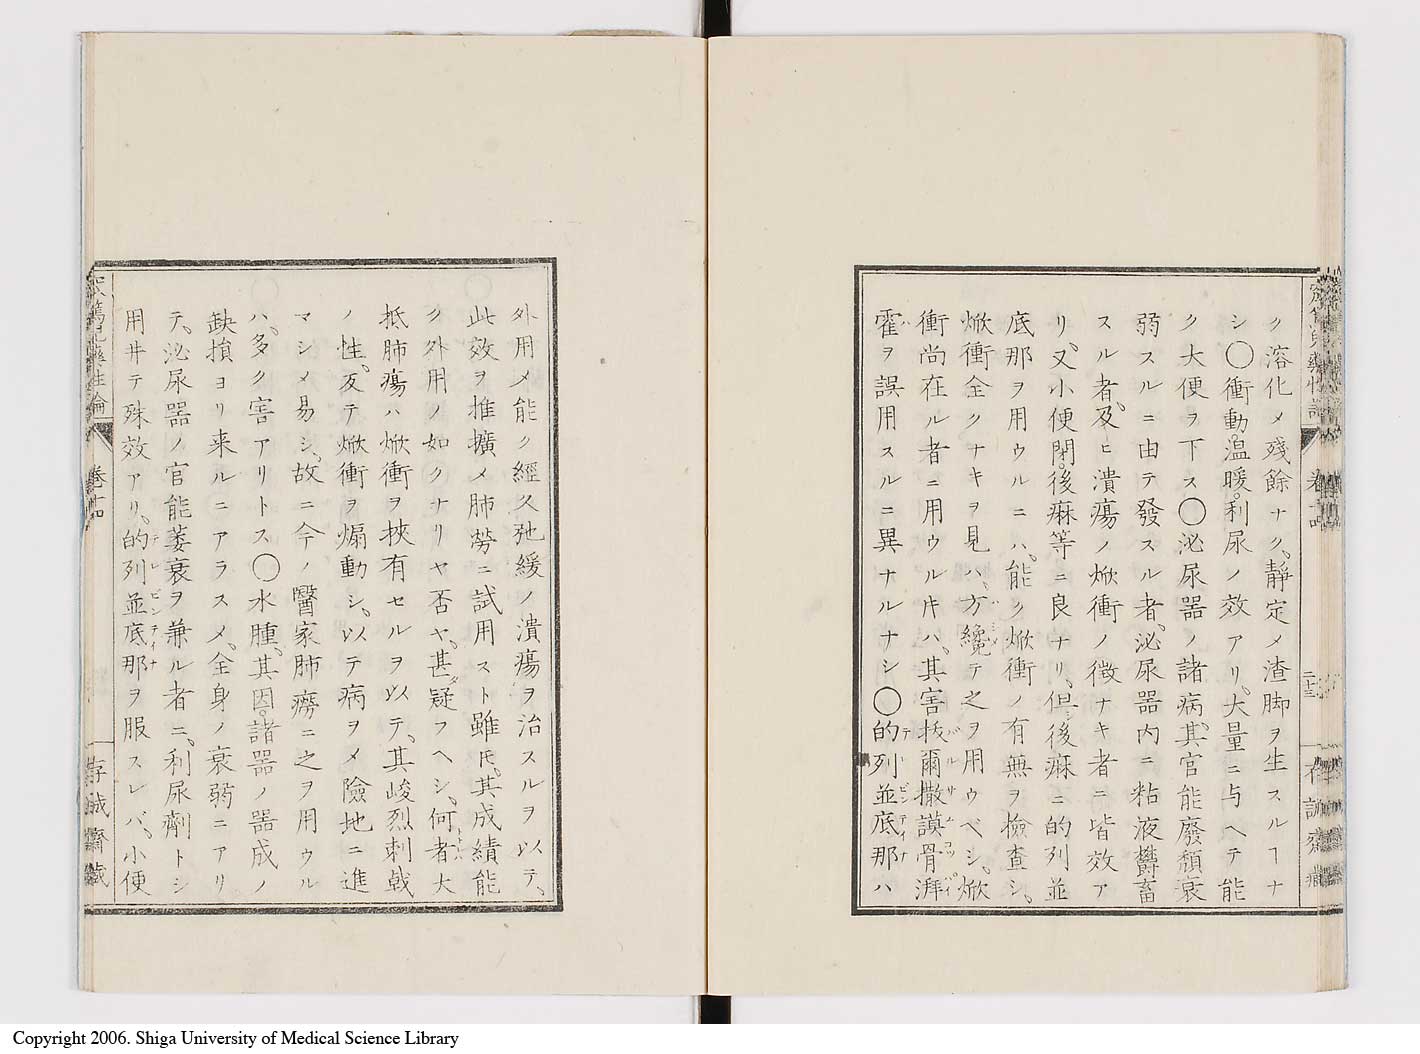 ク溶化メ殘餘ナク、靜定メ渣脚ヲ生スルヿナ
シ〇衝動温暖。利尿ノ效アリ、大量ニ与ヘテ能
ク大便ヲ下ス〇泌尿器ノ諸病、其官能廢頽衰
弱スルニ由テ發スル者、泌尿器内ニ粘液欝畜
スル者、及ヒ潰瘍ノ焮衝ノ徴ナキ者ニ皆效ア
リ、又小便閉。後痳等ニ良ナリ、但シ後痳ニ的列並
底那ヲ用ウルニハ、能ク焮衝ノ有無ヲ撿査シ、
焮衝全クナキヲ見ハ、方纔テ之ヲ用ウベシ、焮
衝尚在ル者ニ用ウル片ハ、其害抜爾撒謨骨湃
霍ヲ誤用スルニ異ナルナシ〇的列並底那ハ
卷十四
二十三
外用メ能ク經久弛緩ノ潰瘍ヲ治スルヲ以テ、
此效ヲ推擴メ肺勞ニ試用スト雖𪜈、其成績能
ク外用ノ如クナリヤ否ヤ、甚タ疑フヘシ、何者大
抵肺瘍ハ焮衝ヲ挾有セルヲ以テ、其峻烈刺戟
ノ性、反テ焮衝ヲ煽動シ、以テ病ヲメ險地ニ進
マシメ易シ、故ニ今ノ醫家肺癆ニ之ヲ用ウル
ハ、多ク害アリトス〇水腫、其因。諸器ノ器成ノ
缺損ヨリ来ルニアラスメ、全身ノ衰弱ニアリ
テ、泌尿器ノ官能萎衰ヲ兼ル者ニ、利尿劑トシ
用井テ殊效アリ、的列並底那ヲ服スレバ、小便
卷十四
Copyright 2006. Shiga University of Medical Science Library